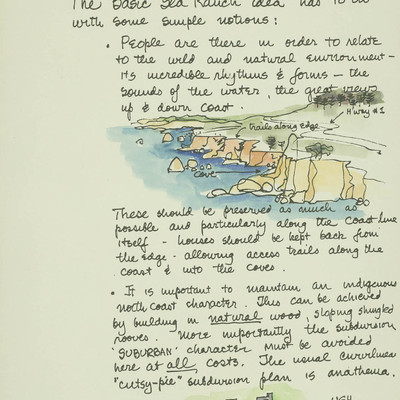 The Basic Sea Ranch idea has to do
with some simple notions:
• People are there in order to relate
to the wild and natural environment –
its incredible rhythms & forms – the
sounds of the water, the great views
up & down coast.
H'way #1
trails along edge
cove
These should be preserved as much as
possible and particularly along the coast line
itself – houses should be kept back from
the edge – allowing access trails along the
coast & into the coves.
• It is important to maintain an indigenous
north coast character. This can be achieved
by building in natural wood, sloping shingled
rooves. More importantly the subdivision
'SUBURBAN' character must be avoided
here at all costs. The usual curvilinear
"cutsy-pie" subdivision plan is anathema.
UGH